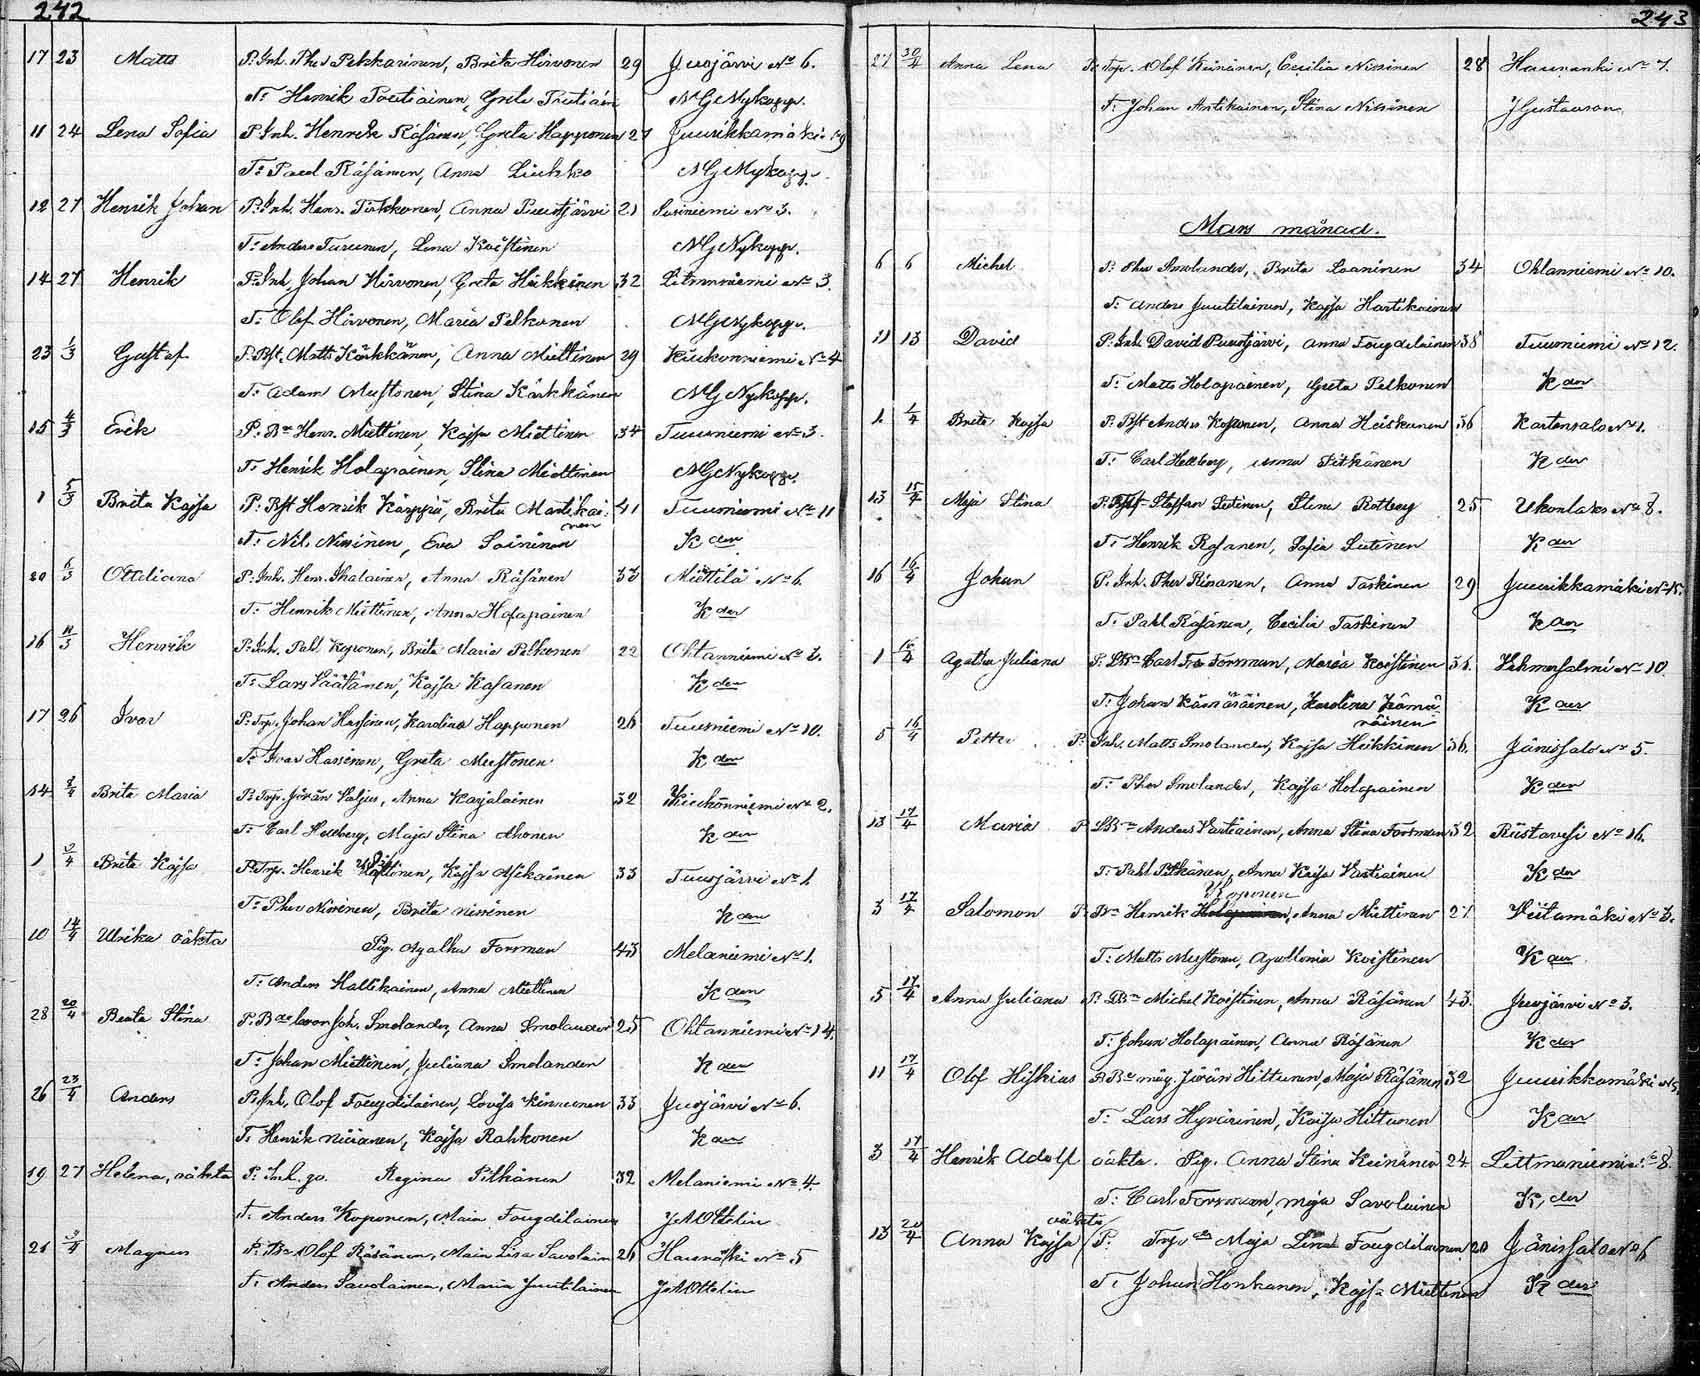 242
17 23 Matts P. Inh. Pher Pekkarinen, Brita Hirvonen 29 Juojärvi No 6.
T: Henrik Poutiainen, Greta Poutiain NG Nykopp.
11 24 Lena Sofia P. Inh. Henrik Räsänen, Greta Happonen 27 Juurikkamäki 19
T: Paul Räsänen, Anna NG Nykopp.
12 27 Henrik Johan P. Inh. Henr. Pirkkonen, Anna Puustjärvi 21 Susiniemi No 3.
T: Anders Turunen, Lena Koistinen NG Nykopp.
14 27 Henrik P. Inh. Johan Hirvonen, Greta Heikkinen 32 Litmaniemi No 3.
T: Olof Hirvonen, Maria Pelkonen NG Nykopp.
23 1/3 Gustaf P. Bft. Matts Kärkkänen, Anna Miettinen 29 Kiukonniemi No 4
T: Adam Mustonen, Stina Kärkkänen NG Nykopp.
15 4/3 Erik P. Bn Henr. Miettinen, Kajsa Miettinen 34 Tuusniemi No 3.
T: Henrik Holopainen, Stina Miettinen NG Nykopp.
1 5/3 Brita Kajsa P: Bft Henrik Karppi, Brita Martikai- 41 Tuusniemi No 11
nen
T: Nils Nissinen, Eva Soininen K den
20 6/3 Ottiliana P. Inh. Henr. Ihalainen, Anna Räsänen 33 Miettilä No 6.
T: Henrik Miettinen, Anna Holopainen K den
16 11/3 Henrik P. Inh. Pahl Koponen, Brita Maria Pelkonen 22 Ohtanniemi No 3.
T: Lars Väätänen, Kajsa Kosanen K den
17 26 Ivar P. Torp. Johan Hassinen, Karolina Happonen 26 Tuusniemi No 10.
T: Ivar Hassinen, Greta Mustonen K den
14 2/4 Brita Maria P. Torp. Jöran Valjus, Anna Karjalainen 32 No 2.
T: Carl Hellberg, Maja Stina Ahonen K den
1 9/4 Brita Kajsa P. Torp. Henrik Kajsa Asikainen 33 Tuusjärvi No 1.
T: Pher Nissinen, Brita Nissinen K den
10 14/4 Ulrika oäkta Pig. Agatha Forsman 43 Melaniemi No 1.
T: Anders Haltikainen, Anna Miettinen K den
28 20/4 Beata Stina P. Bde Joh. Smolander, Anna Smolander 25 Ohtanniemi No 14.
T: Johan Miettinen, Juliana Smolander K den
26 23/4 Anders P. Inh. Olof Fougdilainen, Lovisa Kinnunen 33 Juojärvi No 6.
T. Henrik Niiranen, Kajsa Rahkonen K den
19 27 Helena, oäkta P. Inh. Regina Pitkänen 32 Melaniemi No 4.
T. Anders Koponen, Maria Fougdilainen J A Ottelin
21 3/4 Magnus P. Bn Olof Räsänen, Maria Lisa Savolain 26 No 5
T: Anders Savolainen, Maria Juutilainen J A Ottelin
243
27 30/4 Anna Lena P. Torp. Olof Keinänen, Cecilia Nissinen 28 No 7.
T: Johan Antikainen, Stina Nissinen J Gustavson
Mars månad.
6 6 Michel P. Pher Smolander, Brita Laaninen 34 Ohtanniemi No 10.
T: Anders Juutilainen, Kajsa Hartikainen
11 13 David P. Inh. David Puustjärvi, Anna Fougdilainen 38 Tuusniemi No 12.
T: Matts Holopainen, Greta Pelkonen K den
1. 1/4 Brita Kajsa P. Bft Anders Kosonen, Anna Heiskanen 36 Kartensalo No 1.
T: Carl Hellberg, Anna Pitkänen K den
13 15/4 Maja Stina P. Bft Staffan Lutinen, Stina Rotberg 25 Ukonlaks No 8.
T: Henrik Rosanen, Sofia Lutinen K den
16 16/4 Johan P. Inh. Pher Rissanen, Anna Taskinen 29 Juurikkamäki No 15.
T: Pahl Räsänen, Cecilia Taskinen K den
1 16/4 Agatha Juliana P. Carl Fr. Forsman, Maria Koistinen 31. Vehmersalmi No 10
T: Johan Kämäräinen, Karolina Kämä-
räinen K den
5 16/4 Petter P. Inh. Matts Smolander, Kajsa Heikkinen 36. Jänissalo No 5.
T: Pher Smolander, Kajsa Holopainen K den
13 17/4 Maria P Anders Vartiainen, Anna Stina Forsman 32 Riistavesi No 16.
T: Pahl Pitkänen, Anna Kajsa Vartiainen K den
Koponen
3 17/4 Salomon P. Bn Henrik Holopainen, Anna Miettinen 27 Viitamäki No 3.
T: Matts Mustonen, Apollonia Koistinen K den
5 17/4 Anna Juliana P. Bn Michel Koistinen, Anna Räsänen 43. Juojärvi No 3.
T: Johan Holopainen, Anna Räsänen K den
11 17/4 Olof Hiskias P. Bn måg. Jöran Hiltunen, Maja Räsänen 32 Juurikkamäki No 5
T: Lars Hyvärinen, Kajsa Hiltunen K den
3 17/4 Henrik Adolf oäkta. Pig. Anna Stina Keinänen 24 Littmaniemi No 8.
T: Carl Forsman, Maja Savolainen K. den
oäkta
13 20/4 Anna Kajsa P: Torp dr Maja Lena Fougdilainen 20 Jänissalo No 6
T: Johan Honkanen, Kajsa Miettinen K den